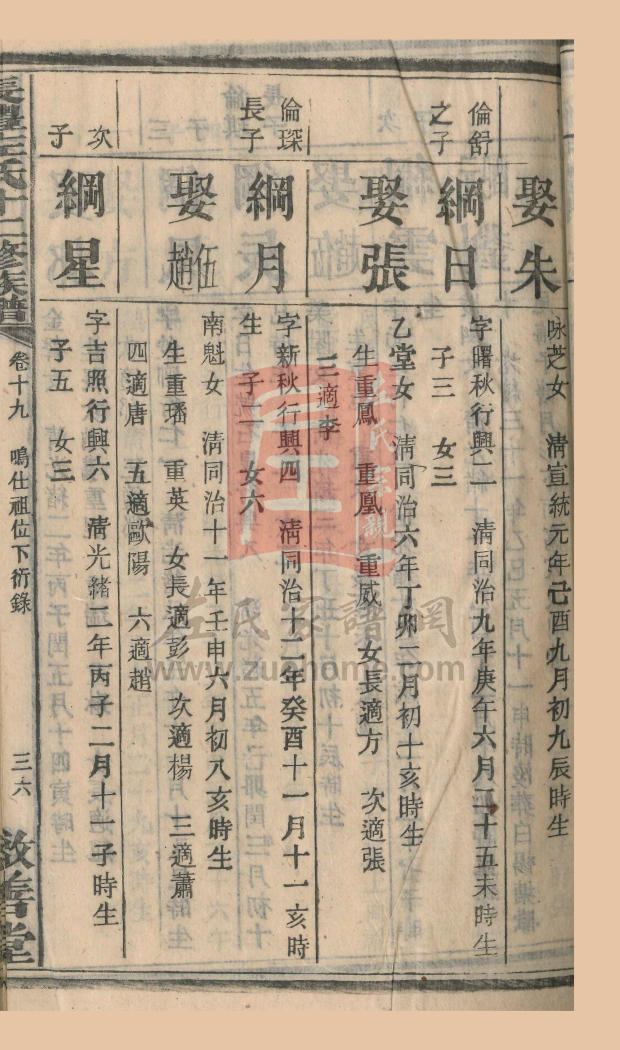 娶朱
咏芝女 清宣統元年己酉九月初九辰時生
倫舒之子
綱日
字曙秋行興二 清同治九年庚午六月二十五未時生
子三 女三
娶張
乙堂女 清同治六年丁卯二月初十亥時生
生重鳳 重凰 重威 女長適方 次適張
三適李
倫琛長子
綱月
字新秋行興四 清同治十二年癸酉十一月十一亥時
生 子二 女六
娶伍趙
南魁女 清同治十一年壬申六月初八亥時生
生重璠 重英 女長適彭 次適楊 三適蕭
四適唐 五適歐陽 六適趙
次子
綱星
字吉照行興六 清光緒二年丙子二月十一子時生
子五 女三
左氏十二修族譜
卷十九 鳴仕祖位下衍錄
三六
敦善堂
左氏宗親
左氏家譜網
www.zuohome.com